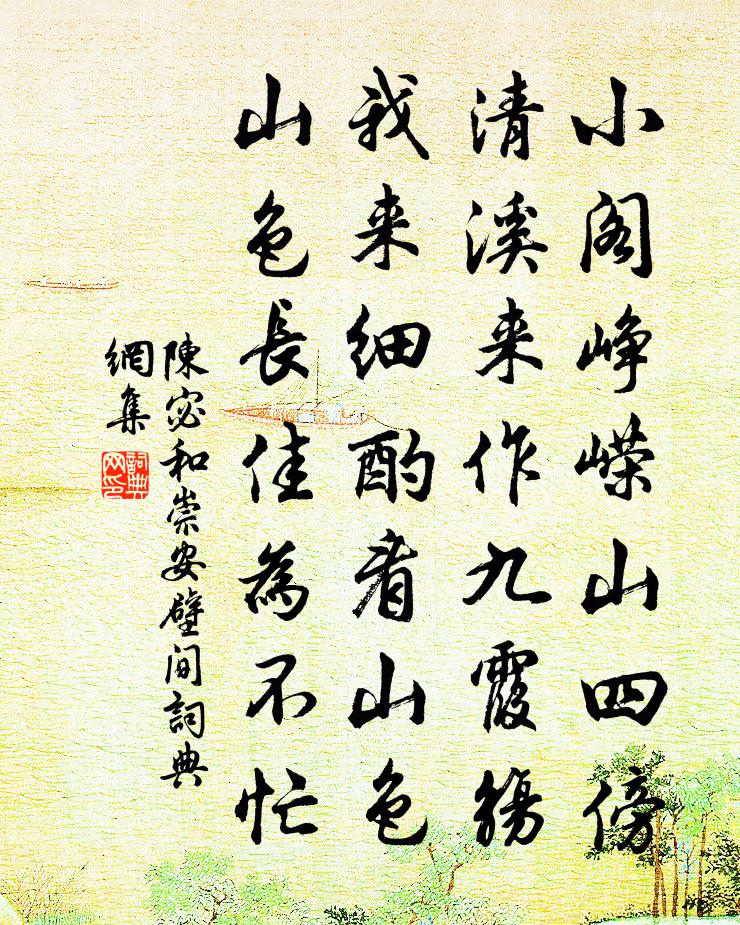 小阁峥嵘山四傍
清溪来作九霞觴
我来细酌看山色
山色長佳為不忙
陳宓和崇安壁间詞典
網集
詞典
网印